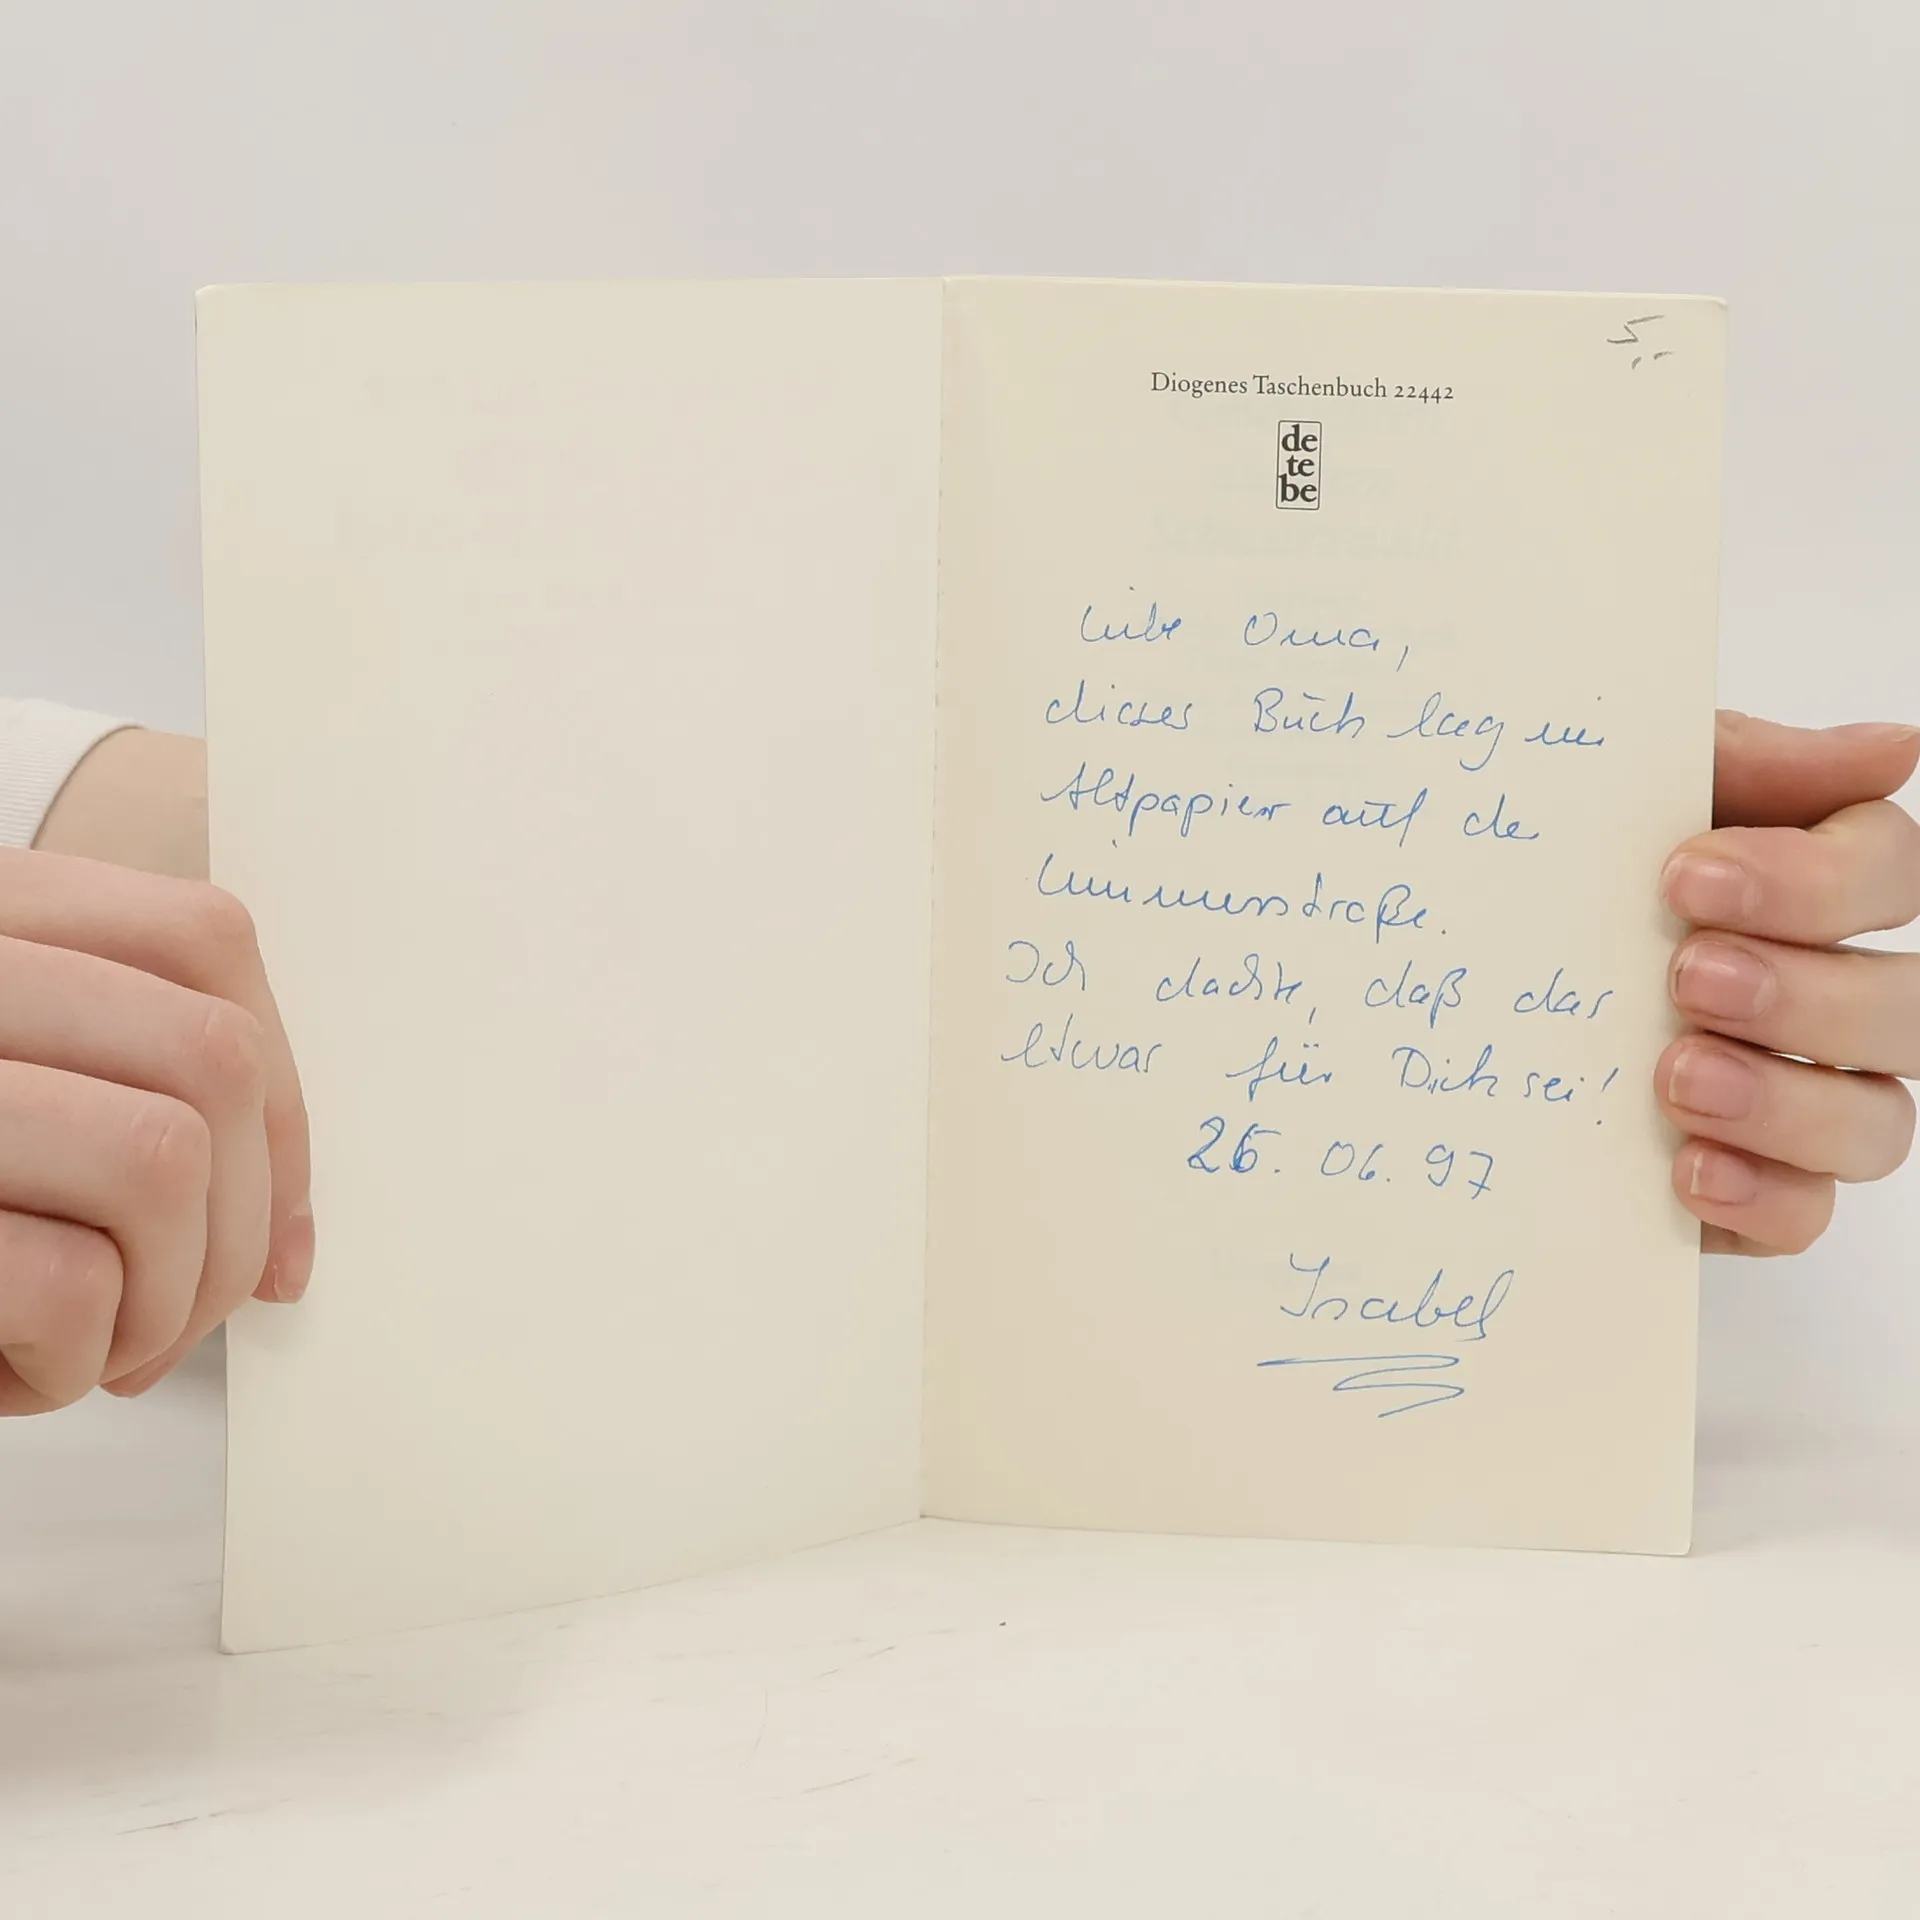 5,-
Diogenes Taschenbuch 22442
de
te
be
Liebe Oma,
dieses Buch lag im
Altpapier auf de
Ich dachte, daß das
etwas für Dich sei!
26. 06. 97
Isabel